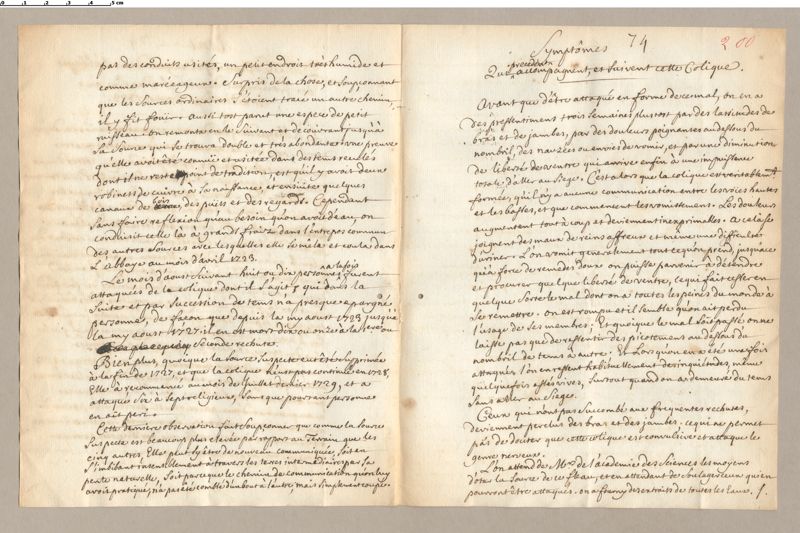 pas des conduits usités, un petit endroit très humide et
comme marécageux. Surpris de la chose, et soupçonnant
que les Sources ordinaires s'étoient tracé un autre chemin,
il y fit fouir. Aussi tost parut une espece de petit
ruisseau. On remonta en le Suivant et decouvrant jusqu'à
sa Source qui se trouva double et tres abondente. Une preuve
qu'elle avoit été connüe et visitée dans des tems reculés
dont il ne reste point de tradition, est qu'il y avait deux
robinets de cuivre à sa naissance, et ensuite quelques
canaux de bois des puits et des regards. Cependant
sans faire reflexion qu'au besoin qu'on avoit d'eau, on
conduisit celle là à grands fraix dans l'entrepos commun
des autres Sources avec lesquelles elle se mêla et coula dans
L'abbaye au mois d'avril 1723.
Le mois d'aoust Suivant huit ou dix personnes à la fois furent
attaquées de la colique dont il s'agit, qui dans la
Suite et par Succession de tems n'a presque epargné
personne, de façon que depuis la my aoust 1723 jusqu'à
la my aoust 1727 il en est mort dix ou onze à la 1ere ou
Seconde rechute.
Bien plus, quoique la Source Suspecte eut été supprimée
à la fin de 1727, et que la colique n'eust pas continué en 1728,
Elle a recommencé au mois de Juillet dernier 1729, et a
attaqué Six à Sept religieux, Sans que pourtant personne
en ait peri.
Cette derniere observation fait Soupçonner que comme la Source
Suspecte est beaucoup plus elevée par rapport au Terrain que les
cinq autres. Elle peut s'être de nouveau communiquée, soit en
s'imbibant insensiblement à travers les terres intermediaires par Sa
pente naturelle, Soit parceque le chemin de communication qu'on luy
avoit pratiqué, n'a pas été comblé d'un bout à l'autre, mais simplement coupé.
74
200
Symptômes
Qui précedent, accompagnent, et Suivent cette Colique.
Avant que d'être attaqué en forme de ce mal, on en a
des pressentimens trois Semaines plustost par des lassitudes de
bras et de jambes, par des douleurs poignantes au dessous du
nombril, des nauzées ou envies de vomir, et par une diminution
de liberté de ventre qui arrive enfin à une impuissance
totale d'aller au Siege. C'est alors que la colique est veritablemt
formée, qu'il n'y a aucune communication entre les voies hautes
et les basses, et que commencent les vomissemens. Les douleurs
augmentent tout à coup et deviennent inexprimables. A cela se
joignent des maux de reins affreux et même une difficulté
d'uriner. L'on vomit generalement tout ce qu'on prend jusqu'à ce
qu'à force de remedes doux on puisse parvenir à detendre
et procurer quelque liberté de ventre, ce qui fait cesser en
quelque Sorte le mal dont on a toutes les peines du monde à
se remettre. On est rompu et il semble qu'on ait perdu
l'usage de Ses membres; Et quoique le mal Soit passé on ne
laisse pas que de ressentir des picottemens au dessous du
nombril de tems à autre. Et Lorsqu'on en a été une fois
attaqué l'on en ressent habituellement des inquiétudes, même
quelquefois assés vives, Surtout quand on a demeuré du tems
Sans aller au Siege.
Ceux qui n'ont pas Succombé aux frequentes rechutes,
deviennent perclus des bras et des jambes. ce qui ne permet
pas de douter que cette colique est convulsive et attaque le
genre nerveux.
L'on attend de Mrs de l'academie des Sciences les moyens
d'oter la Source de ce fleau, et en attendant de soulager ceux qui en
pourront être attaqués. on a fourny des extraits de toutes les Eaux.